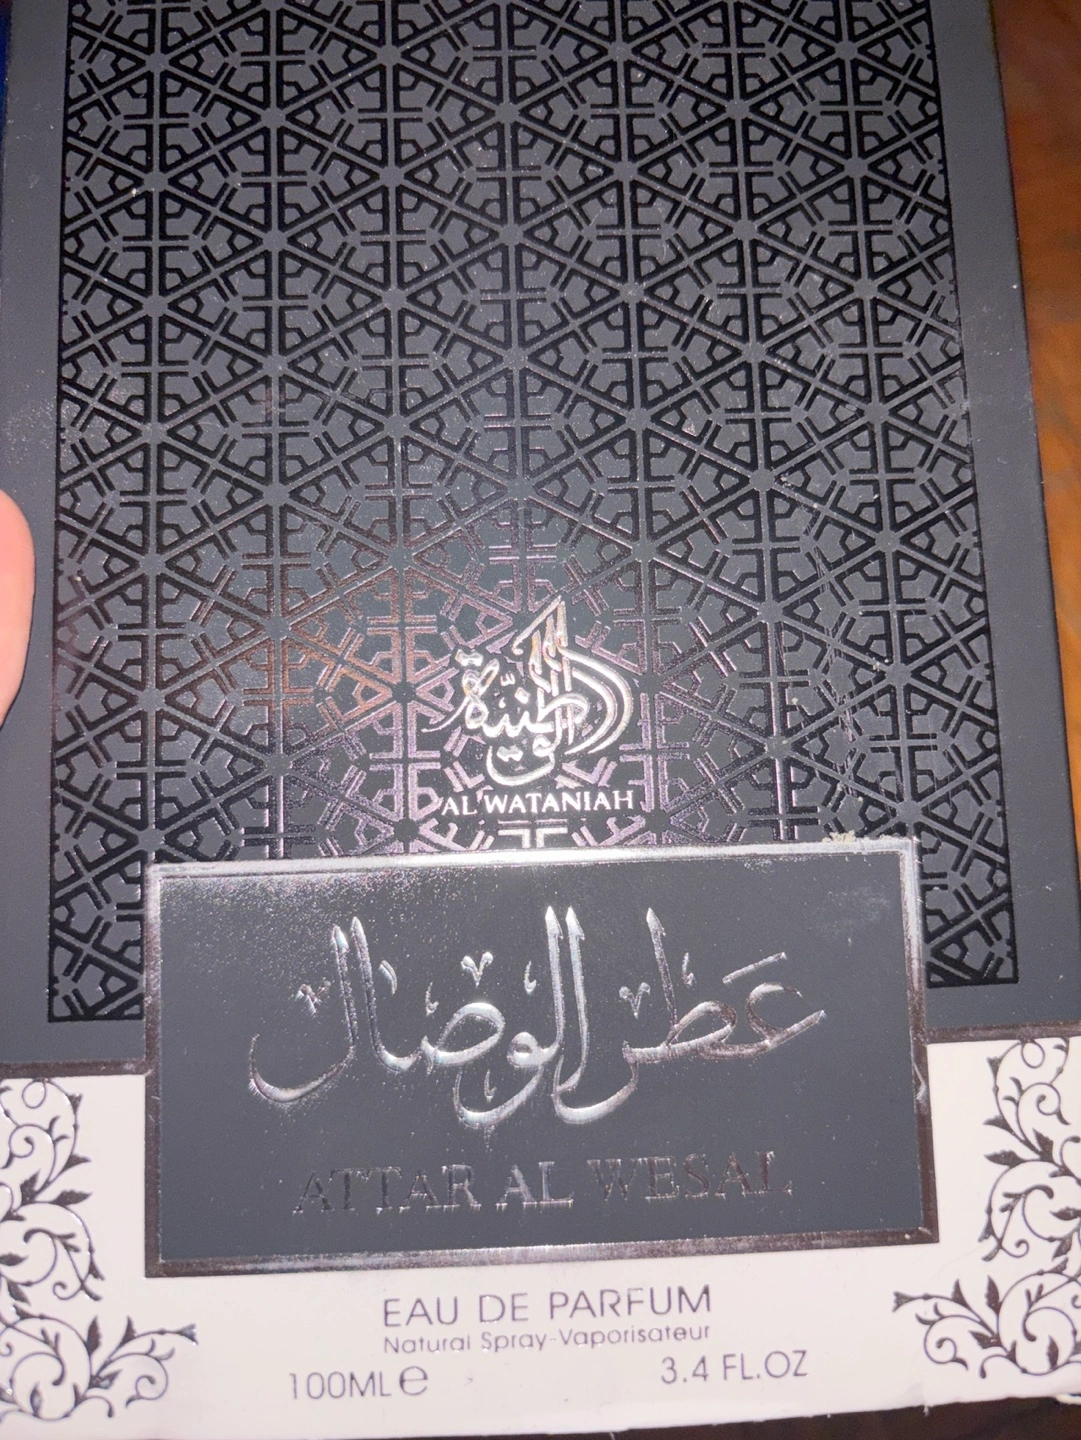 الوطنية
AL WATANIAH
عطر الوصال
ATTAR AL WESAL
EAU DE PARFUM
Natural Spray-Vaporisateur
100ML e 3.4 FL.OZ